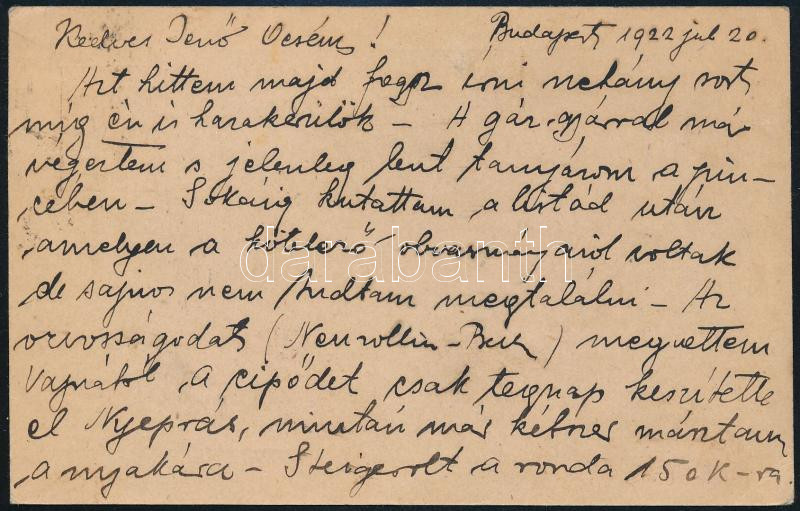 Kedves Jenő Öcsém! Budapest, 1922 jul 20.
Azt hittem majd fogsz irni nehány sort
míg én is hazakerülök – A gáz-gyárral már
végeztem s jelenleg lent tanyázom a pin-
cében – Sokáig kutattam a listád után
amelyen a kötelező olvasmányaid voltak
de sajnos nem tudtam megtalálni – Az
orvosságodat (Neurollin-) megvettem
Vajnától. A cipődet csak tegnap készítette
el Nyeprás, miután már kétszer másztam
a nyakára – Steigerolt a ronda 150 K-ra.
darabanth.com